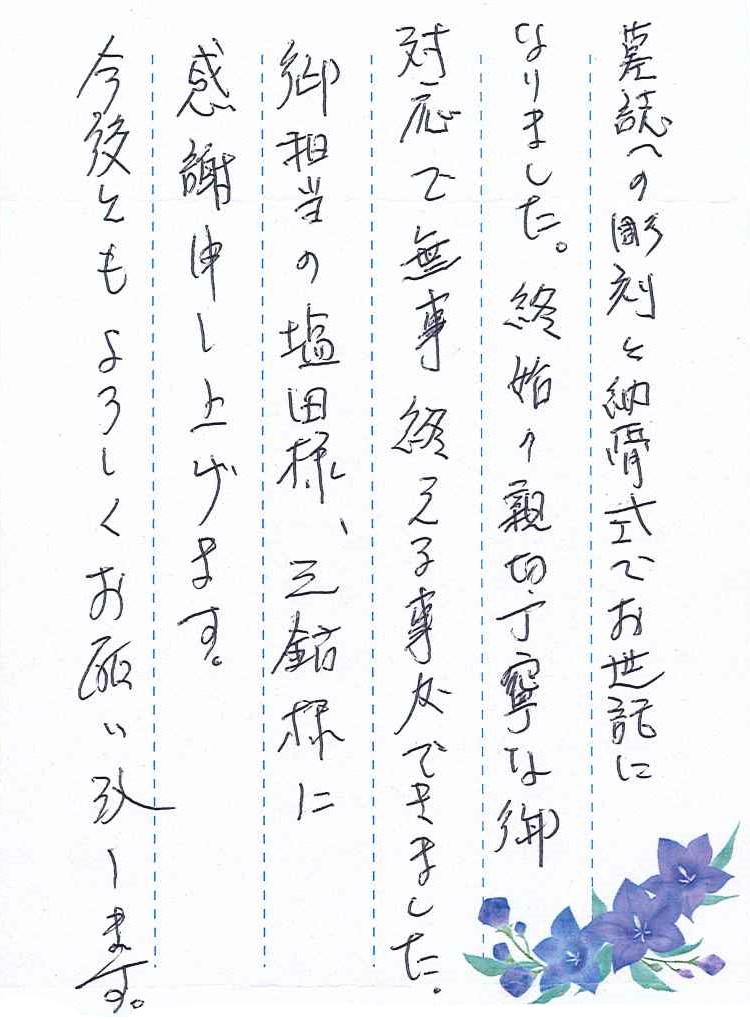 墓誌への彫刻と納骨式でお世話に
なりました。終始ご親切丁寧な御
対応で無事終える事ができました。
御担当の塩田様、三鈷様に
感謝申し上げます。
今後ともよろしくお願い致します。